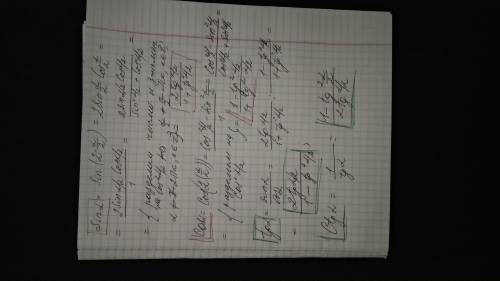 sin α = sin (2·α/2) = 2 sin α/2 cos α/2 =
= 2 sin α/2 cos α/2 / 1 = 2 sin α/2 cos α/2 / sin² α/2 + cos² α/2 =
= { разделим числ и знамен
на cos² α/2 ≠ 0 = 2 tg α/2 / 1 + tg² α/2
cos α = cos (2(α/2)) = cos² α/2 - sin² α/2 = cos² α/2 - sin² α/2 / cos² α/2 + sin² α/2 =
= { разделим на cos² α/2 } = 1 - tg² α/2 / 1 + tg² α/2
tg α = sin α / cos α = 2 tg α/2 / 1 + tg² α/2 : 1 - tg² α/2 / 1 + tg² α/2
= 2 tg α/2 / 1 - tg² α/2
ctg α = 1 / tg α = 1 - tg² α/2 / 2 tg α/2